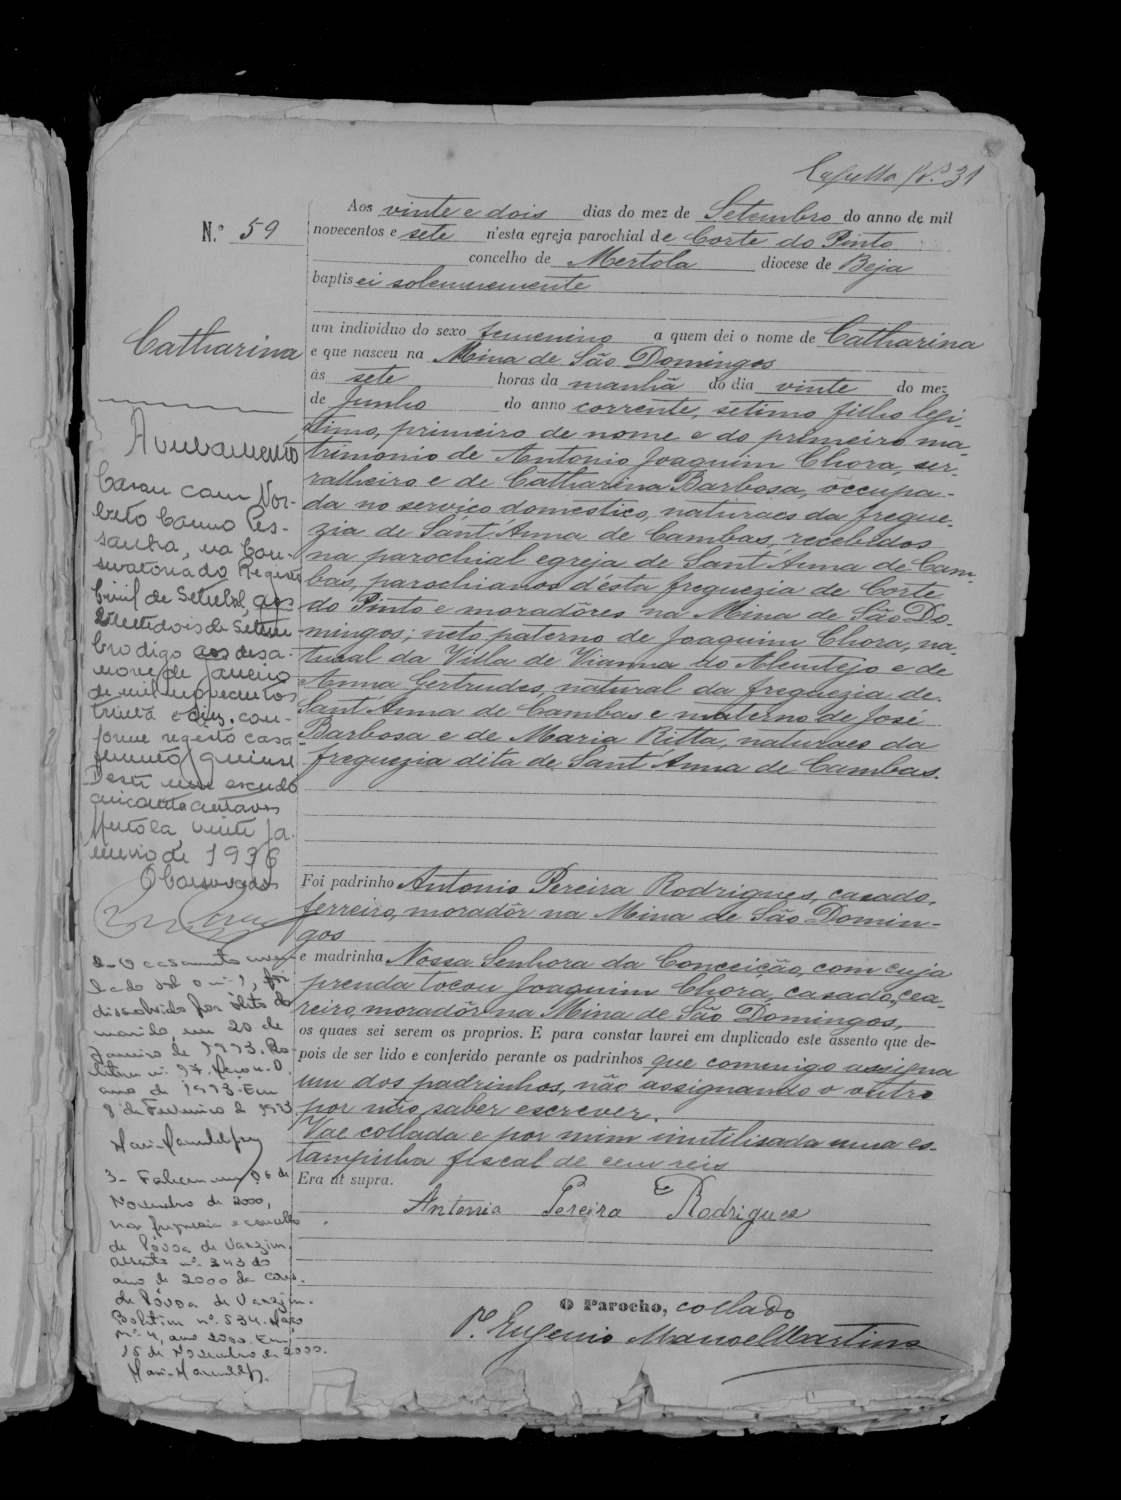 Capella Nº 31
Nº 59
Aos vinte e dois dias do mez de Setembro do anno de mil
novecentos e sete n'esta egreja parochial de Corte do Pinto
concelho de Mertola diocese de Beja
baptisei solemnemente
um individuo do sexo femenino a quem dei o nome de Catharina
e que nasceu na Mina de São Domingos
ás sete horas da manhã do dia vinte do mez
de Junho do anno corrente, setimo filho legi-
timo, primeiro de nome e do primeiro ma-
trimonio de Antonio Joaquim Chora, ser-
ralheiro e de Catharina Barbosa, occupa-
da no serviço domestico, naturaes da fregue-
zia de Sant'Anna de Cambas, recebidos
na parochial egreja de Sant'Anna de Cam-
bas, parochianos d'ésta freguezia de Corte
do Pinto e moradôres na Mina de São Do-
mingos; neto paterno de Joaquim Chora, na-
tural da Villa de Vianna do Alemtejo e de
Anna Gertrudes, natural da freguezia de
Sant'Anna de Cambas e materno de José
Barbosa e de Maria Ritta, naturaes da
freguezia dita de Sant'Anna de Cambas.
Foi padrinho Antonio Pereira Rodrigues, casado,
ferreiro, moradôr na Mina de São Domin-
gos
e madrinha Nossa Senhora da Conceição, com cuja
prenda tocou Joaquim Chora, casado, cea-
reiro, moradôr na Mina de São Domingos,
os quaes sei serem os proprios. E para constar lavrei em duplicado este assento que de-
pois de ser lido e conferido perante os padrinhos que comigo assigna
um dos padrinhos, não assignando o outro
por não saber escrever.
Vae collada e por mim inutilisada uma es-
tampilha fiscal de cem reis
Era ut supra.
Antonio Pereira Rodrigues
O Parocho, collado
Pe. Eugenio Manoel Martins
Catharina
Averbamento
Casou com Nor-
berto Canno Pes-
sanha, na Con-
servatoria do Registo
Civil de Setubal, aos
vinte e dois de Setem
bro digo aos desa-
nove de Janeiro
de mil novecentos
trinta e seis, con-
forme registo casa
mento quinse
Deste um escudo
cincoenta centavos
Mertola, vinte Ja-
neiro de 1936
O Conservador
2- O casamento aver-
bado sob o nº 1, foi
dissolvido por óbito do
marido, em 20 de
Janeiro de 1973. Bo-
letim nº 97. Maço n.º
ano de 1973. Em
8 de Fevereiro de 1973
3- Faleceu em 06 de
Novembro de 2000,
na freguesia e concelho
de Póvoa de Varzim.
Assento nº 343 do
ano de 2000 da Cons.
de Póvoa de Varzim.
Boletim nº 534. Maço
Nº 4, ano 2000. Em
15 de Novembro de 2000.